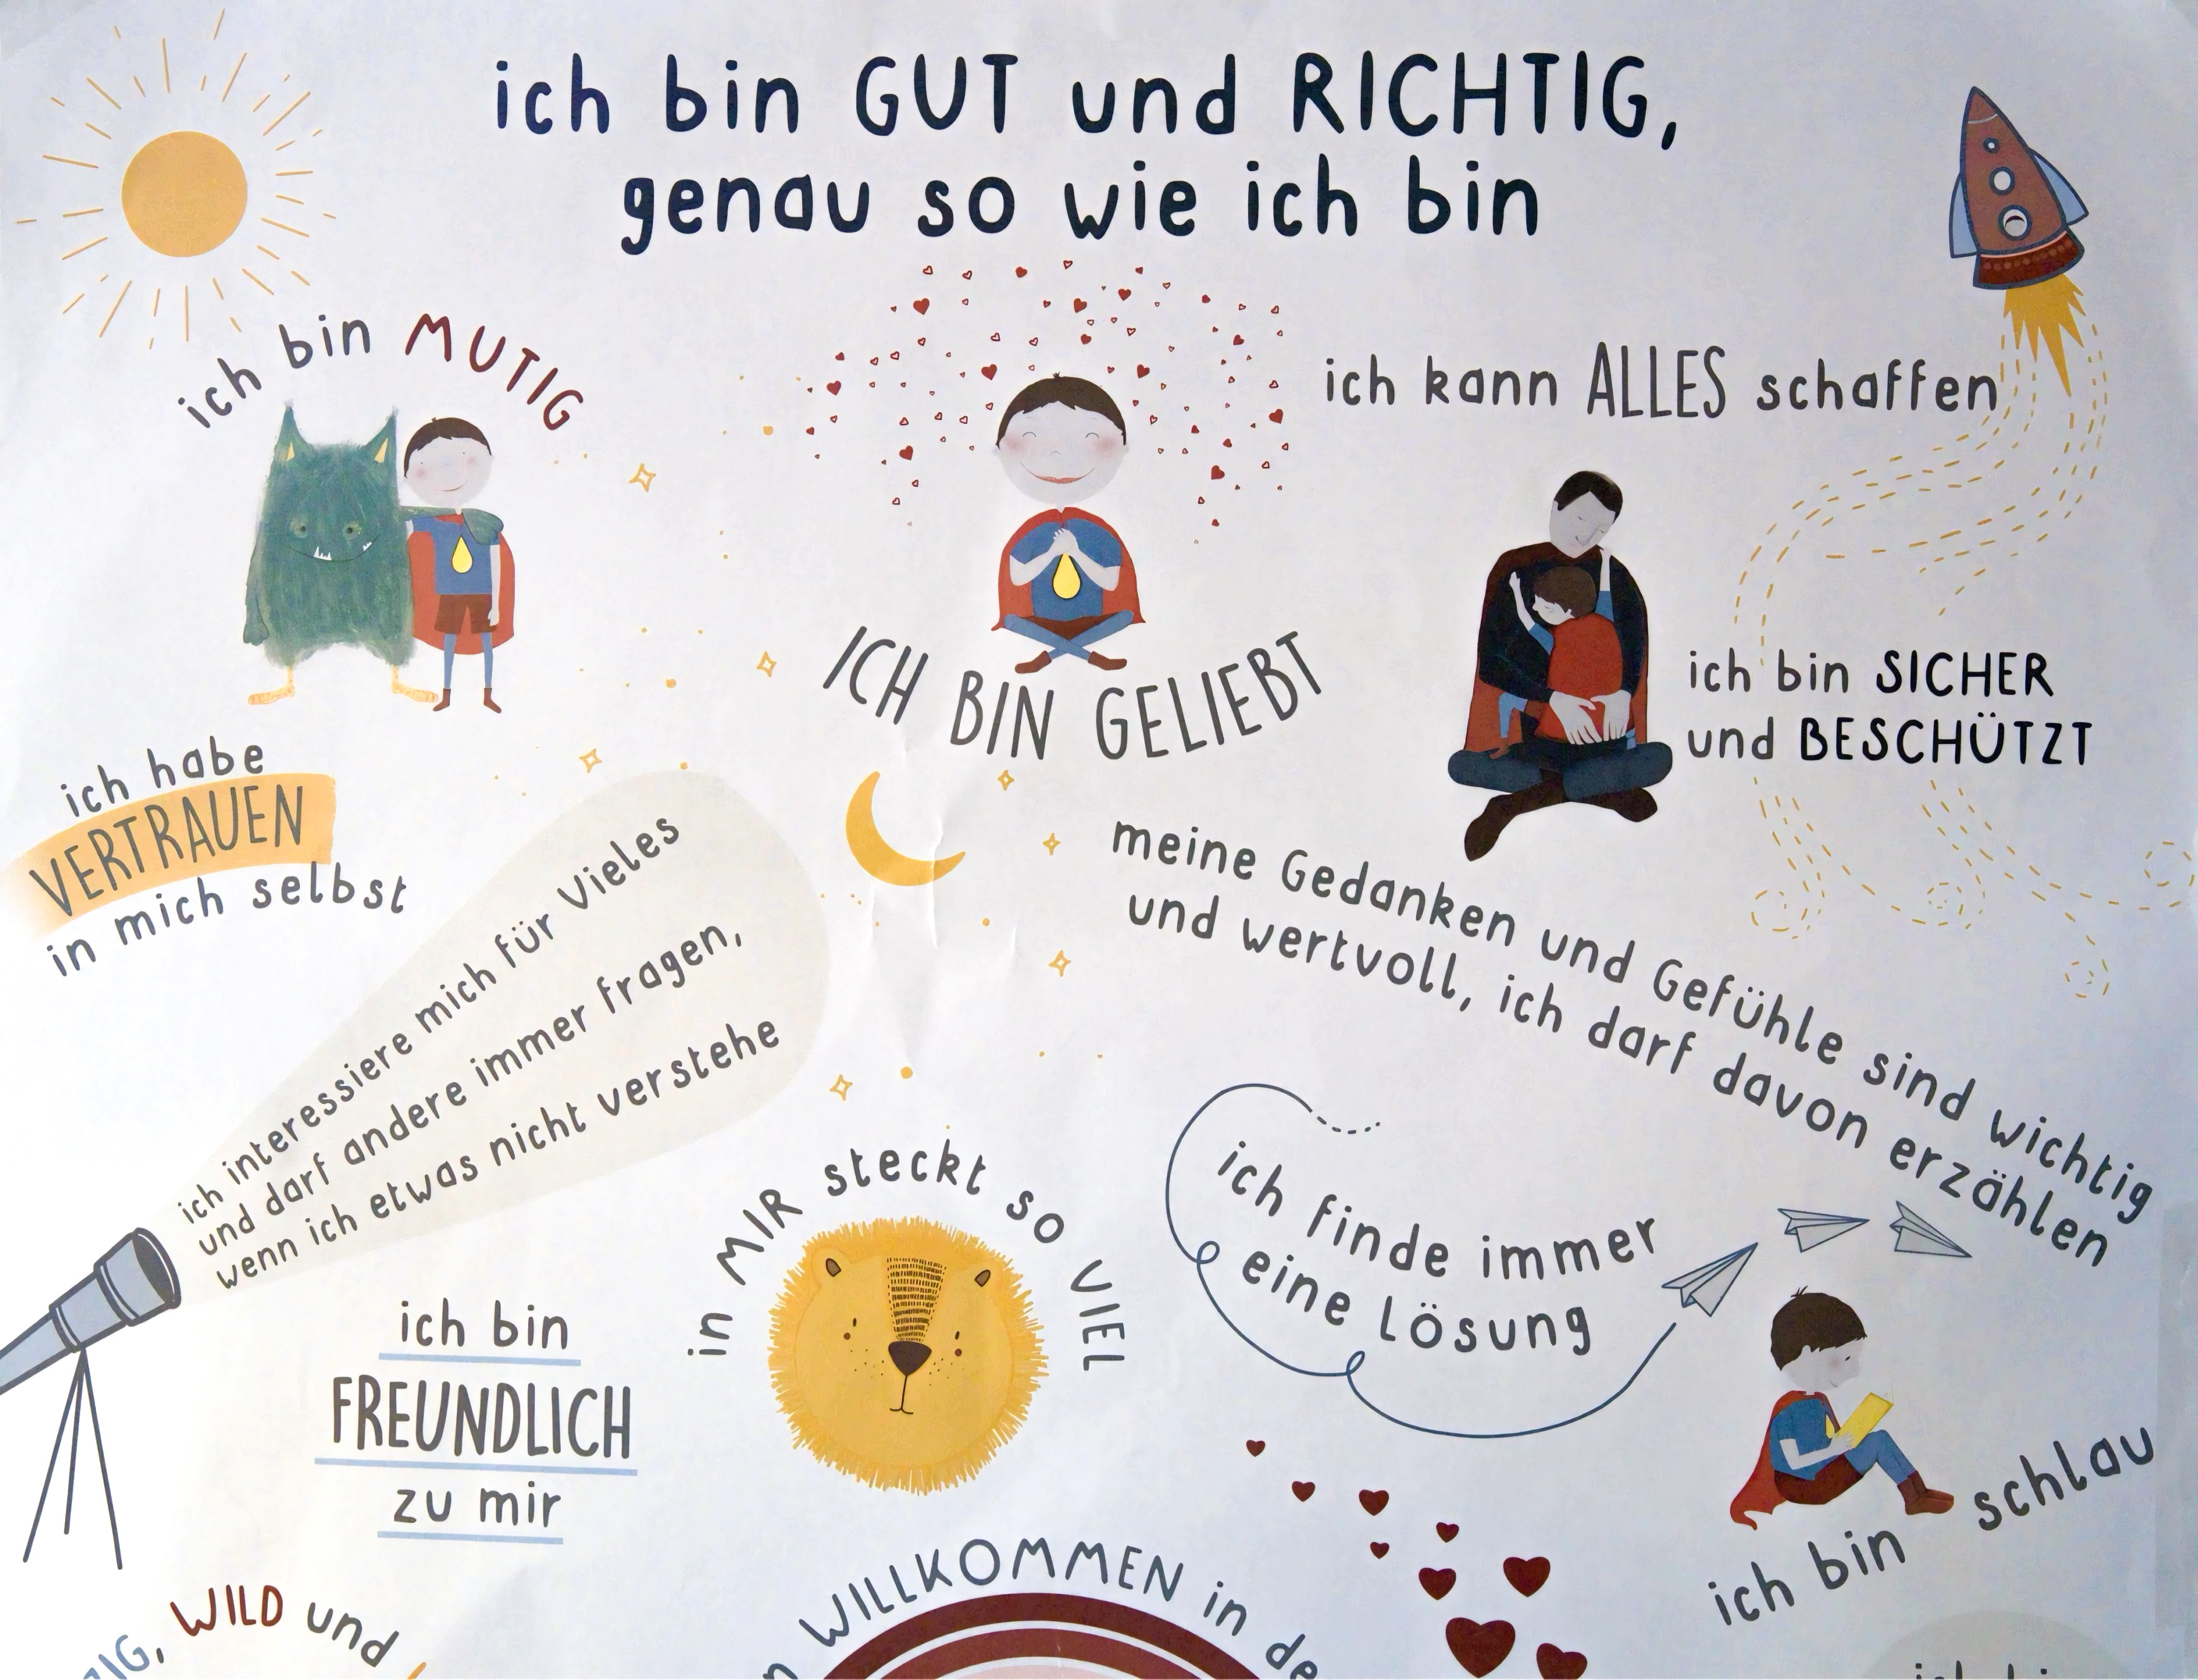 ich bin GUT und RICHTIG,
genau so wie ich bin
ich bin MUTIG
ich kann ALLES schaffen
ICH BIN GELIEBT
ich bin SICHER
und BESCHÜTZT
ich habe
VERTRAUEN
in mich selbst
meine Gedanken und Gefühle sind wichtig
und wertvoll, ich darf davon erzählen
ich interessiere mich für Vieles
und darf andere immer fragen,
wenn ich etwas nicht verstehe
in MIR steckt so VIEL
ich finde immer
eine Lösung
ich bin
FREUNDLICH
zu mir
ich bin schlau
WILD und
WILLKOMMEN in